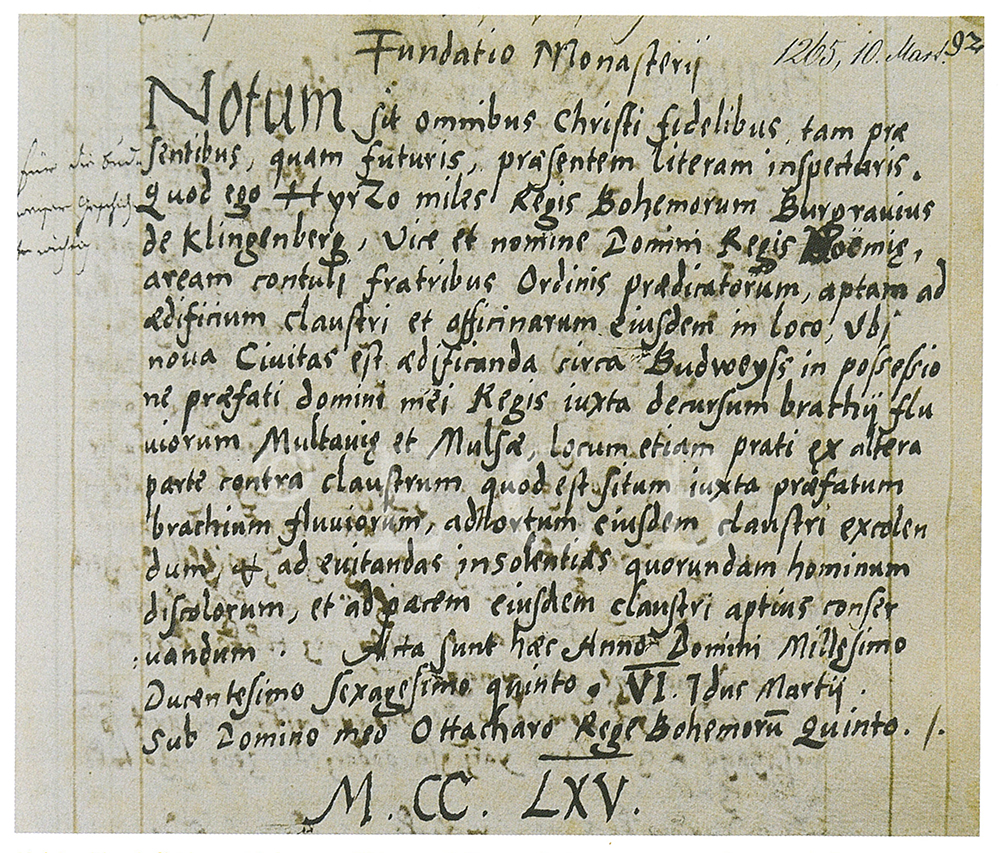 Fundatio Monasterij
1265, 10. Mart. 92
Notum sit omnibus Christi fidelibus, tam præ
sentibus, quam futuris, præsentem literam inspecturis.
Quod ego HyrZo miles Regis Bohemorum Burgrauius
de Klingenberg, Vice et nomine Domini Regis Boëmię,
aream contuli fratribus Ordinis prædicatorum, aptam ad
ædificium claustri et officinarum eiusdem in loco, Vbi
noua Ciuitas est ædificanda circa Budweyss in possessio
ne præfati domini mei Regis iuxta decursum brachij flu
uiorum Multauię et Mulsæ, locum etiam prati ex altera
parte contra claustrum quod est situm iuxta præfatum
brachium fluuiorum, ad hortum eiusdem claustri excolen
dum, & ad euitandas insolentias quorundam hominum
discolorum, et ad pacem eiusdem claustri aptius conser
uandum. Acta sunt hæc Anno Domini Millesimo
Ducentesimo sexagesimo quinto. VI. Idus Martij.
Sub Domino meo Ottacharo Rege Bohemorū Quinto. /.
M. CC. LXV.
für die Bud-
weiser Geschich-
te wichtig